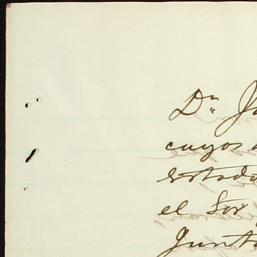 Dn Ja
cuyos
estado
el Sor
Junta